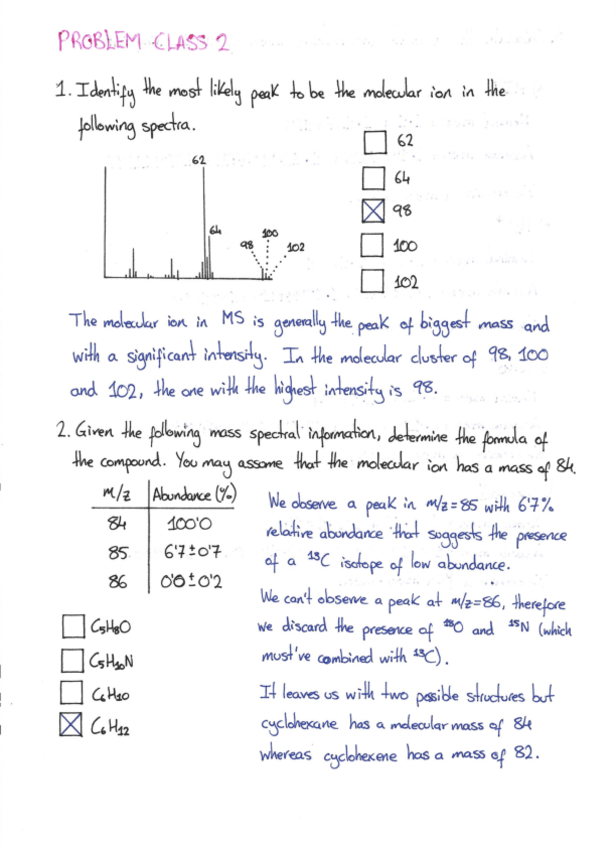 PROBLEM CLASS 2
1. Identify the most likely peak to be the molecular ion in the
following spectra.
62
64
98
100
102
62
64
98
100
102
The molecular ion in MS is generally the peak of biggest mass and
with a significant intensity. In the molecular cluster of 98, 100
and 102, the one with the highest intensity is 98.
2. Given the following mass spectral information, determine the formula of
the compound. You may assume that the molecular ion has a mass of 84.
m/z Abundance (%)
84 100'0
85 6'7 ± 0'7
86 0'0 ± 0'2
C5H8O
C5H10N
C6H10
C6H12
We observe a peak in m/z=85 with 6'7%
relative abundance that suggests the presence
of a 13C isotope of low abundance.
We can't observe a peak at m/z=86, therefore
we discard the presence of 18O and 15N (which
must've combined with 13C).
It leaves us with two possible structures but
cyclohexane has a molecular mass of 84
whereas cyclohexene has a mass of 82.